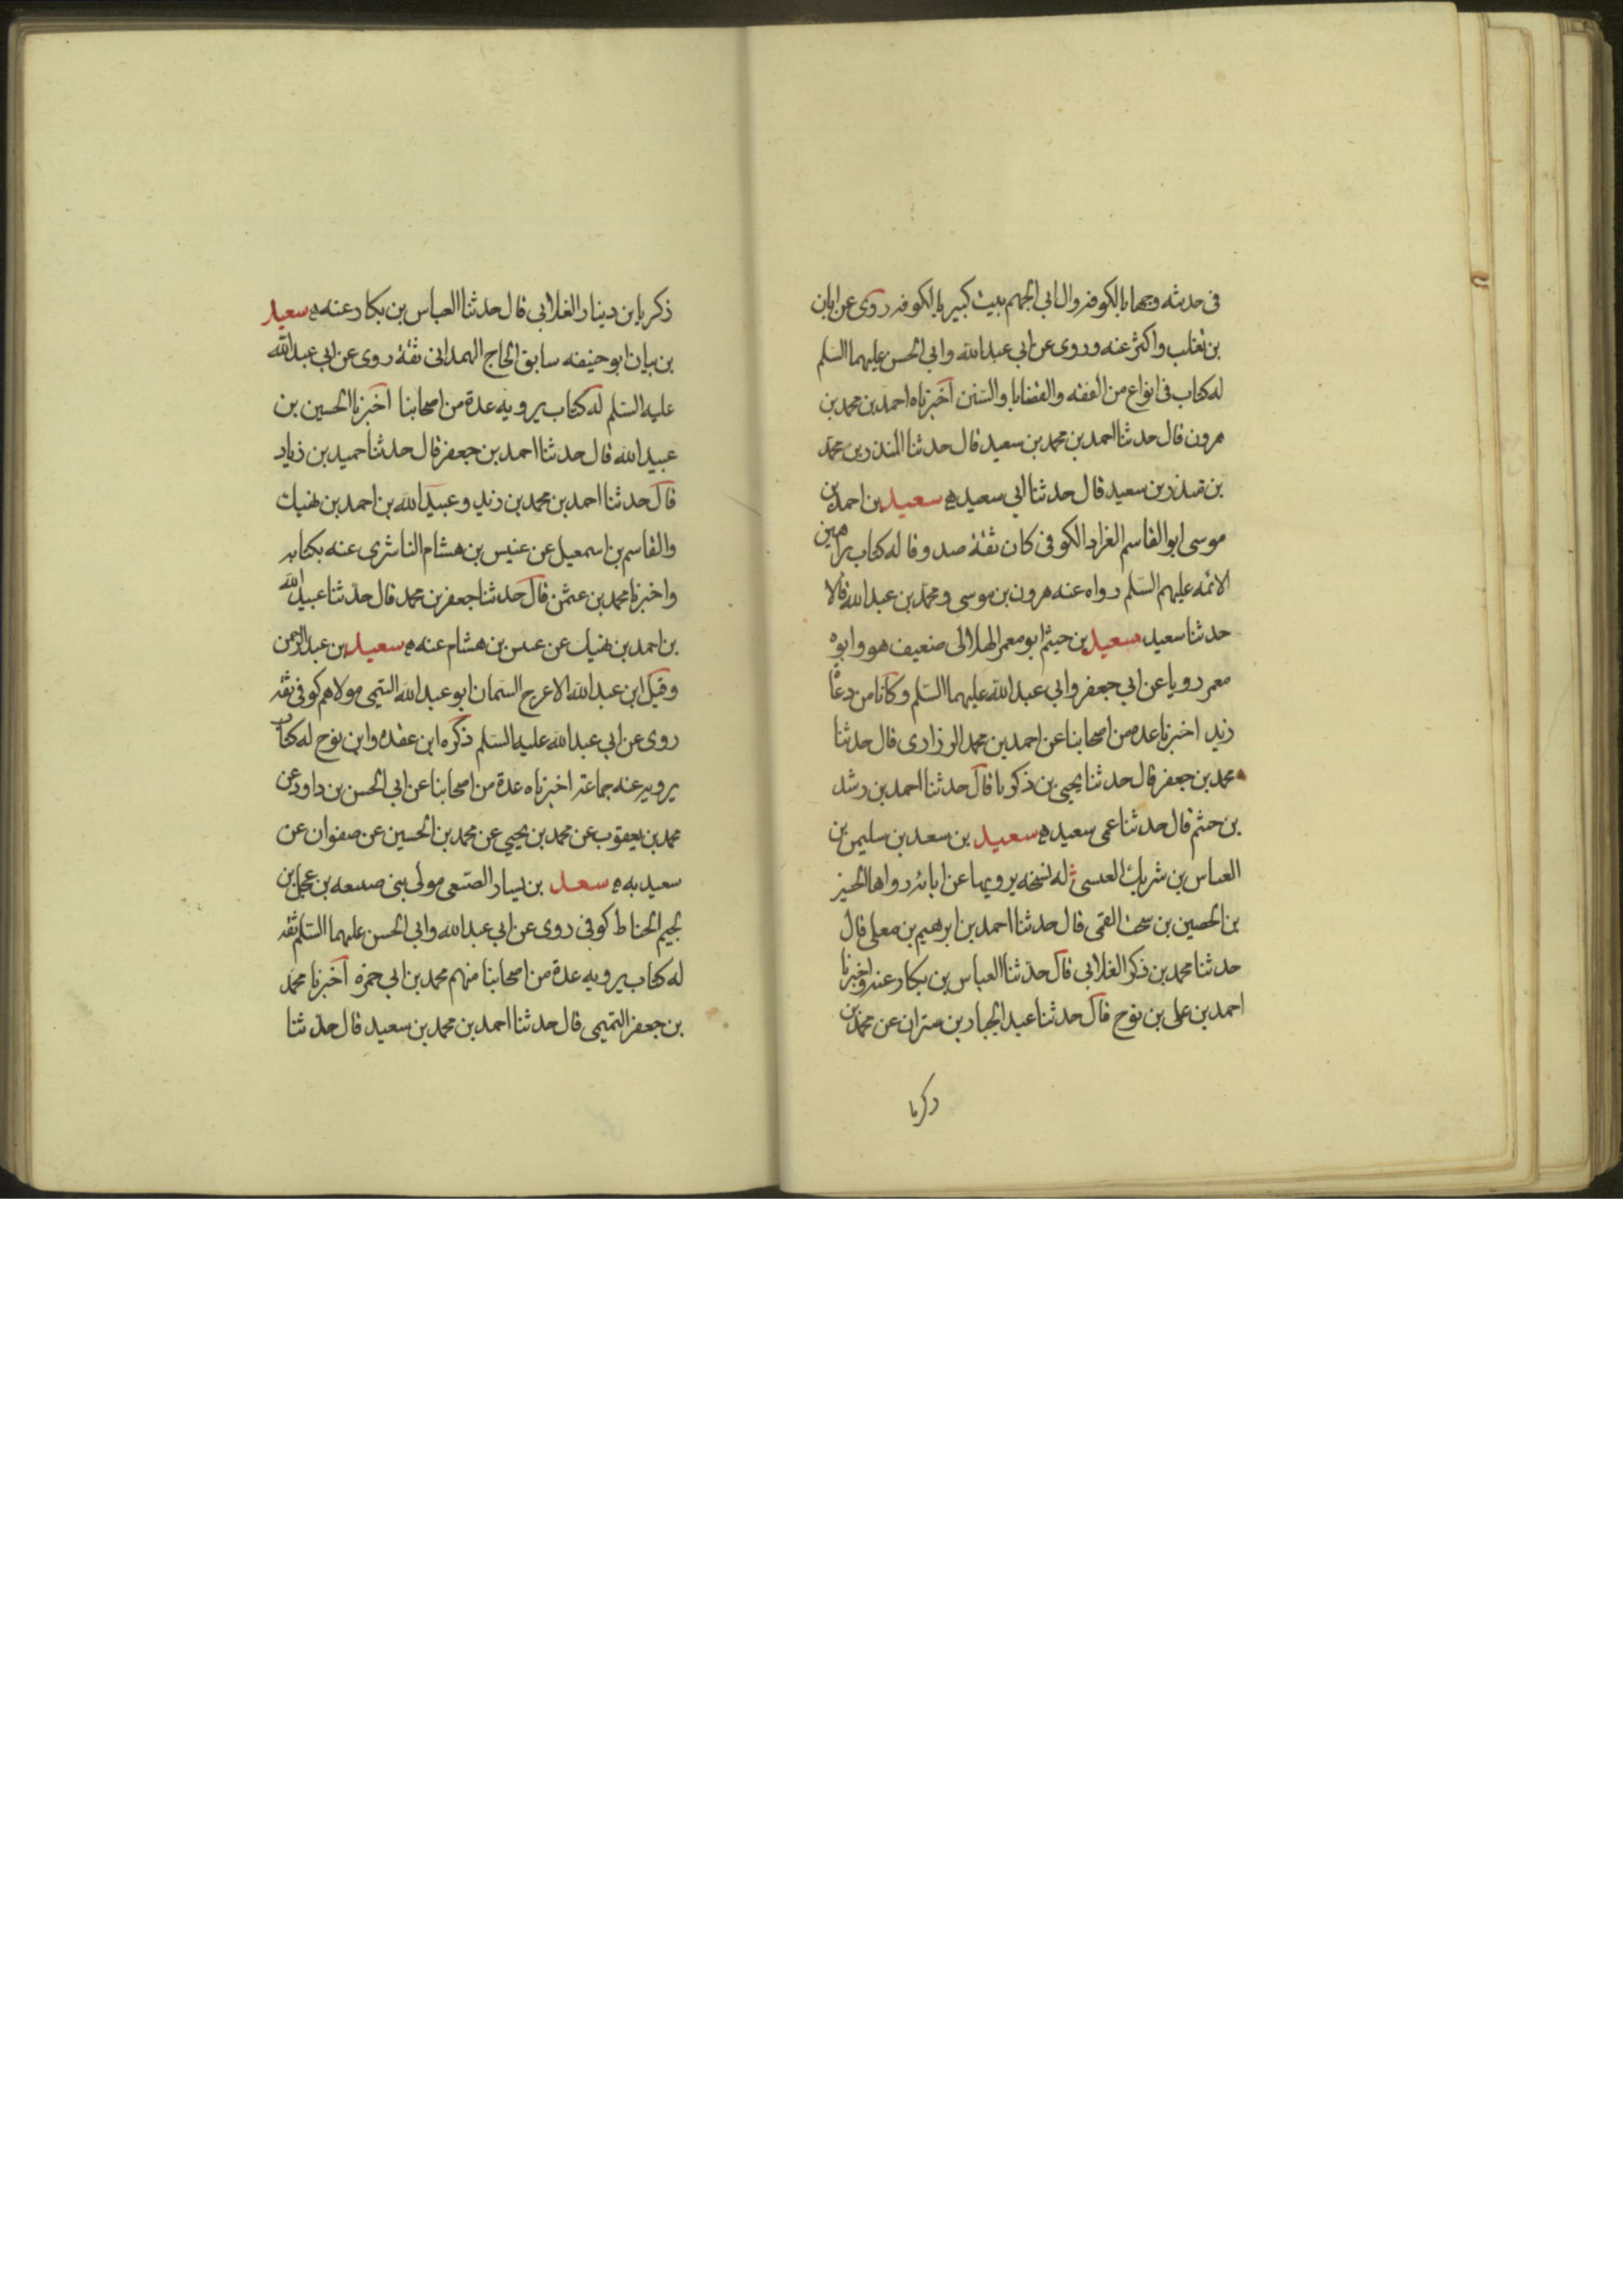 فى حديثه وجها بالكوفه وال ابى الجهم بيت كبير بالكوفه روى عن ابان
بن تغلب واكثر عنه وروى عن ابى عبد الله وابى الحسن عليهما السلم
له كتاب فى انواع من الفقه والقضايا والسنن اخبرناه احمد بن محمد بن
هرون قال حدثنا احمد بن محمد بن سعيد قال حدثنا المنذر بن محمد
بن منذر بن سعيد قال حدثنا ابى سعيد ه سعيد بن احمد بن
موسى ابو القاسم الغراد الكوفى كان ثقة صدوقا له كتاب براهين
الائمه عليهم السلم رواه عنه هرون بن موسى ومحمد بن عبد الله قالا
حدثنا سعيد ه سعيد بن خيثم ابو معمر الهلالى ضعيف هو وابوه
معمر رويا عن ابى جعفر وابى عبد الله عليهما السلم وكانا من دعاة
زيد اخبرنا عده من اصحابنا عن احمد بن محمد الرزازى قال حدثنا
محمد بن جعفر قال حدثنا يحيى بن ذكريا قال حدثنا احمد بن رشد
بن خثم قال حدثنا عمى سعيد ه سعيد بن سعد بن سليمن بن
العباس بن شريك العبسى له نسخه يرويها عن ابائه رواها الخيز
بن الحصين بن سحت القمى قال حدثنا احمد بن ابرهيم بن معلى قال
حدثنا محمد بن ذكر الغلابى قال حدثنا العباس بن بكار عنه واخبرنا
احمد بن على بن نوح قال حدثنا عبد الجبار بن ستران عن محمد بن
ذكريا
ذكريا بن دينار الغلابى قال حدثنا العباس بن بكار عنه ه سعيد
بن بيان ابو حنيفه سابق الحاج الهمدانى ثقة روى عن ابى عبد الله
عليه السلم له كتاب يرويه عدة من اصحابنا اخبرنا الحسين بن
عبيد الله قال حدثنا احمد بن جعفر قال حدثنا حميد بن زياد
قال حدثنا احمد بن محمد بن زيد وعبيد الله بن احمد بن نهيك
والقاسم بن اسمعيل عن عنبس بن هشام الناشرى عنه بكتابه
واخبرنا محمد بن عثمن قال حدثنا جعفر بن محمد قال حدثنا عبيد الله
بن احمد بن نهيك عن عبس بن هشام عنه ه سعيد بن عبد الرحمن
وقيل ابن عبد الله الاعرج السمان ابو عبد الله التيمى مولاهم كوفى ثقه
روى عن ابى عبد الله عليه السلم ذكره ابن عقده وابن نوح له كتاب
يرويه عنه جماعة اخبرناه عدة من اصحابنا عن ابى الحسن بن داود عن
محمد بن يعقوب عن محمد بن يحيى عن محمد بن الحسين عن صفوان عن
سعيد به ه سعيد بن يسار الضبعى مولى بنى ضبيعه بن عجل بن
لجيم الحناط كوفى روى عن ابى عبد الله وابى الحسن عليهما السلم ثقه
له كتاب يرويه عدة من اصحابنا منهم محمد بن ابى حمزه اخبرنا محمد
بن جعفر التميمى قال حدثنا احمد بن محمد بن سعيد قال حدثنا